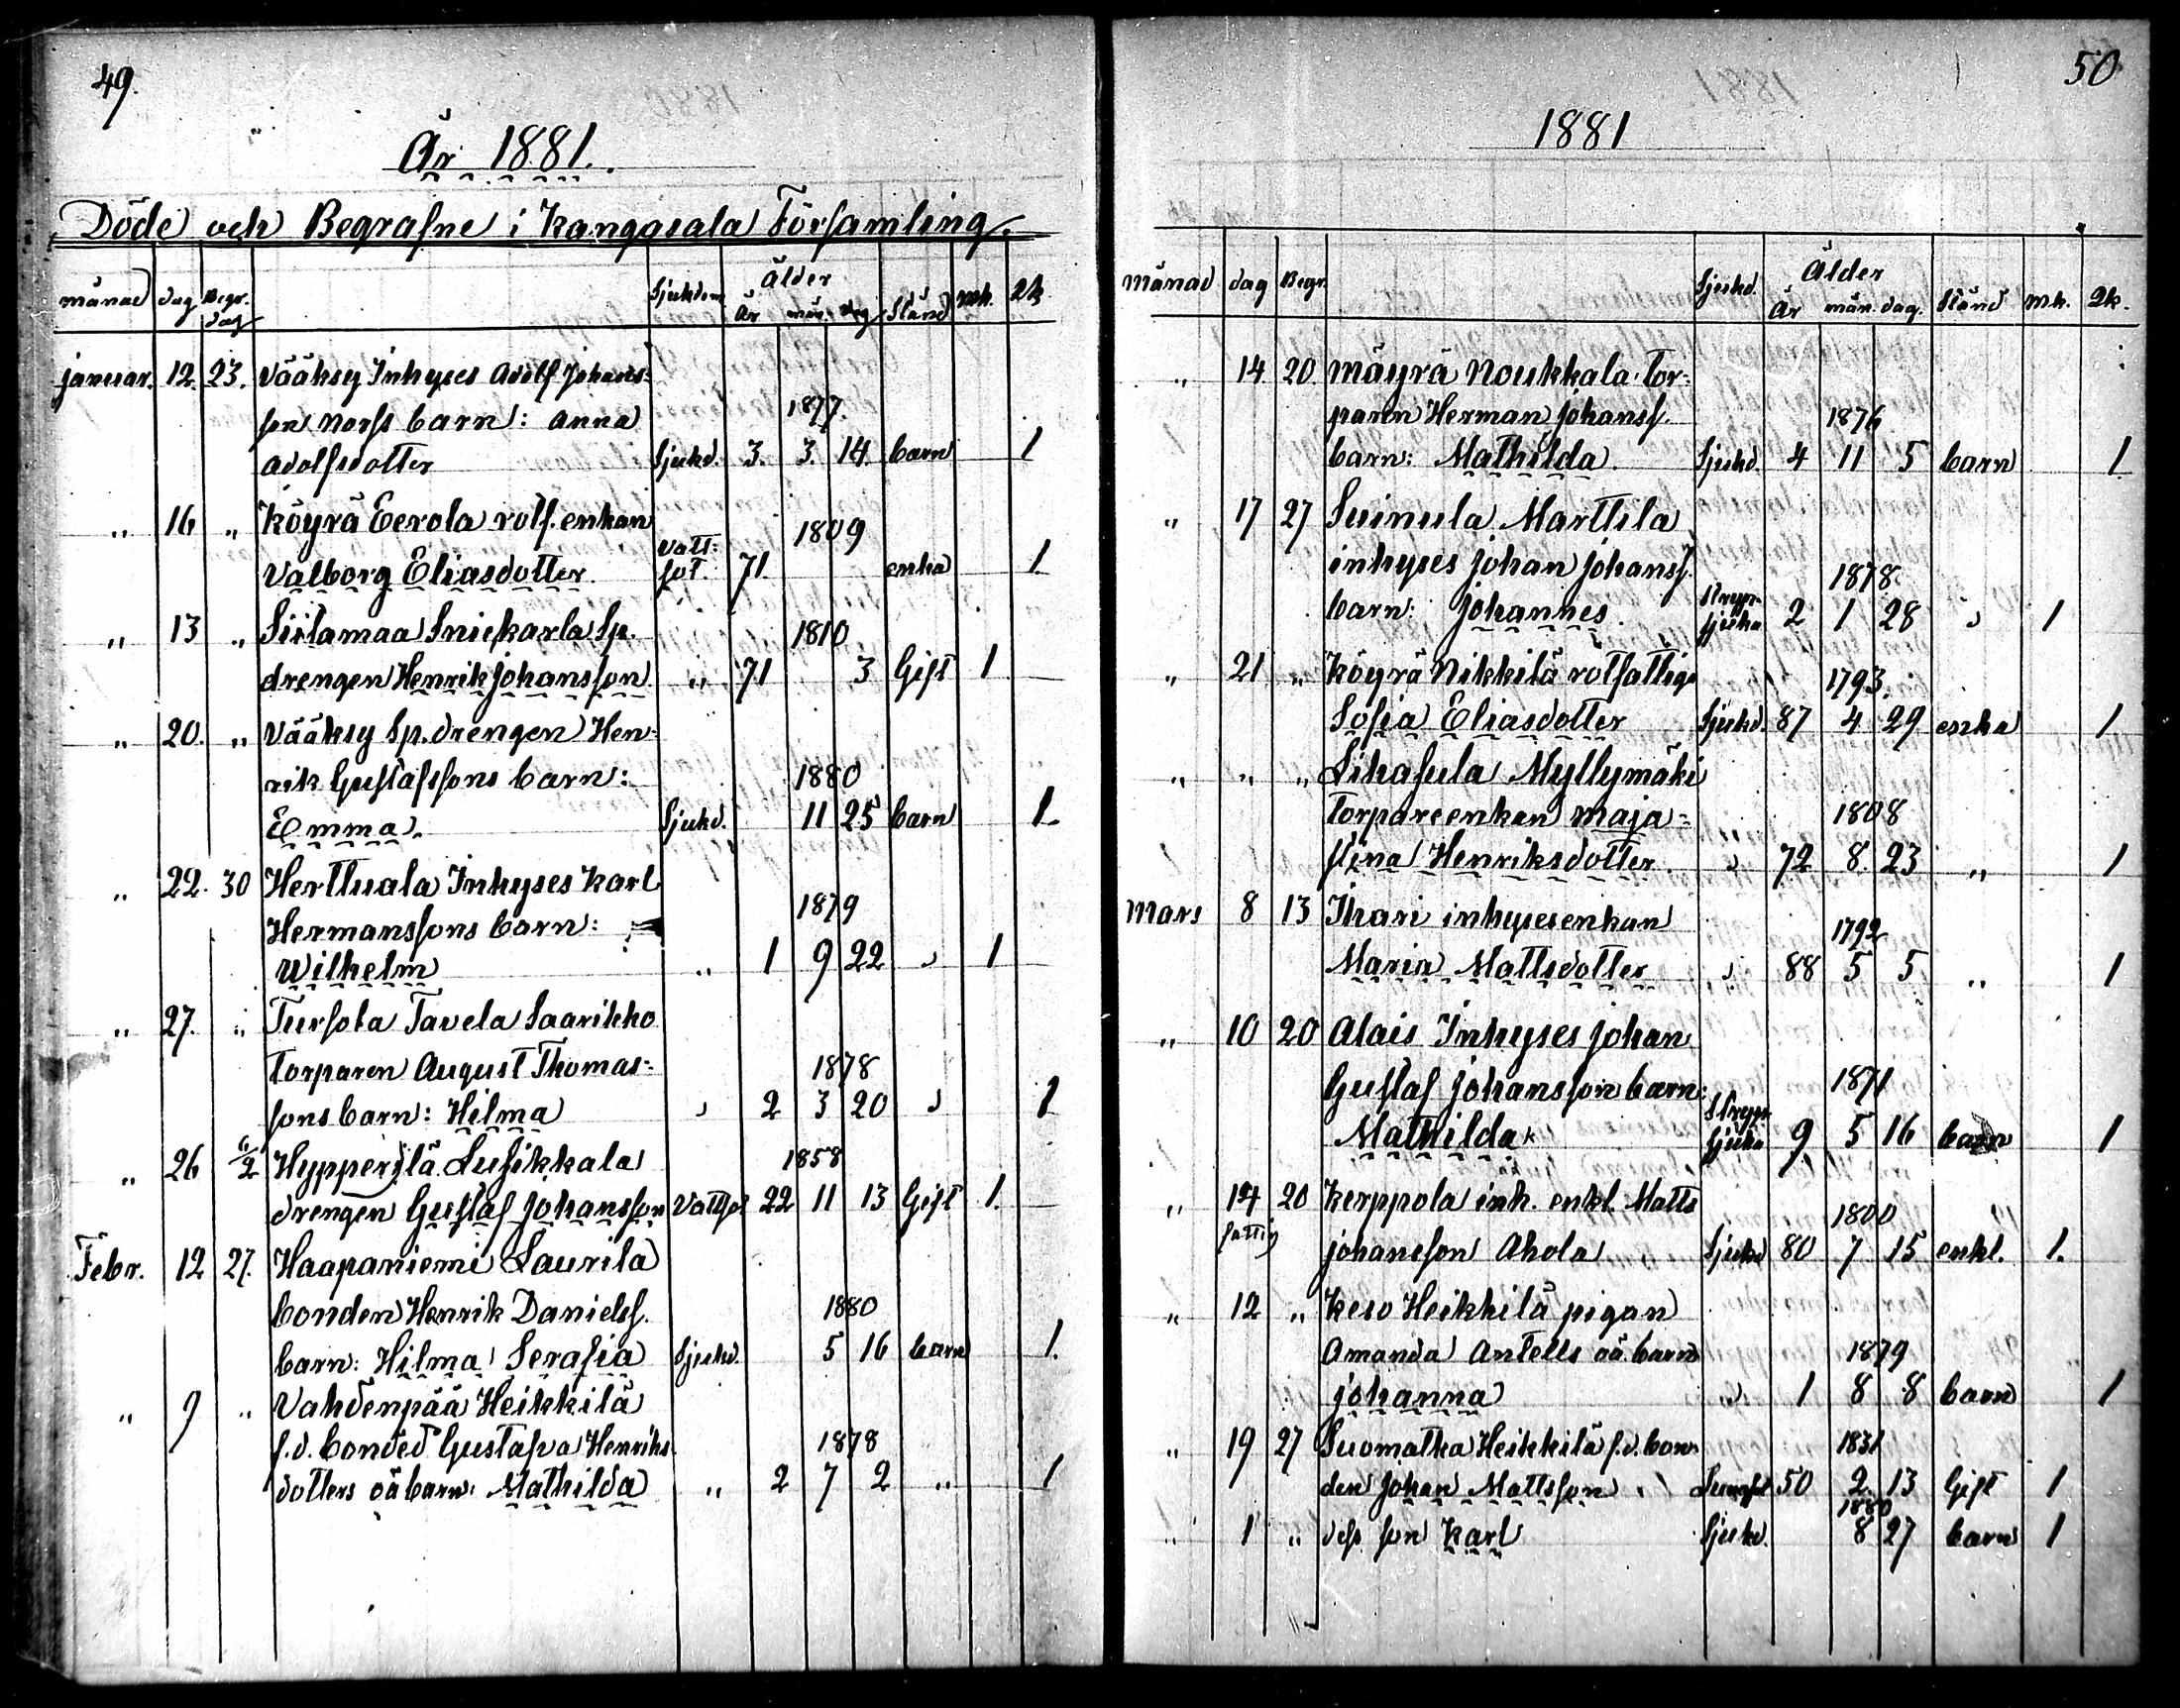 49.
År 1881.
Döde och Begrafne i Kangasala Församling.
månad dag Begr. dag Sjukdom Ålder År mån. dag Stånd mk. qk
januar. 12. 23. Vääksy Inhyses Adolf Johans-
son Norss barn: Anna 1877.
Adolfsdotter Sjukd. 3. 3. 14. barn 1
„ 16 „ Köyrä Eerola rotf. enkan 1809
Valborg Eliasdotter Vatt-sot. 71 enka 1
„ 13 „ Siitamaa Sniekarla Sp. 1810
drengen Henrik Johansson „ 71 3 Gift 1
„ 20. „ Vääksy Sp. drengen Hen-
rik Gustafssons barn: 1880
Emma. Sjukd. 11 25 barn 1
„ 22. 30 Herttuala Inhyses Karl
Hermanssons barn: 1879
Wilhelm „ 1 9 22 „ 1
„ 27. „ Tursola Tavela Saarikko
Torparen August Thomas- 1878
sons barn: Hilma „ 2 3 20 „ 1
„ 26 6/2 Hypperilä Lusikkala 1858
drengen Gustaf Johansson Vattsot 22 11 13 Gift 1.
Febr. 12 27. Haapaniemi Laurila
bonden Henrik Danielss. 1880
barn: Hilma Serafia Sjukd. 5 16 barn 1.
„ 9 „ Vahdenpää Heikkilä
f.d. bonded Gustafva Henriks- 1878
dotters oä barn: Mathilda „ 2 7 2 „ 1
50
1881
månad dag Begr. Sjukd. Ålder År mån. dag. Stånd m.k. qk.
„ 14 20 Mäyrä Noukkala Tor-
paren Herman Johanss. 1876
barn: Mathilda. Sjukd. 4 11 5 barn 1
„ 17 27 Suinula Marttila
inhyses Johan Johanss. 1878
barn: Johannes. Stryp-sjuka 2 1 28 „ 1
„ 21 „ Köyrä Nikkilä rotfattiga 1793.
Sofia Eliasdotter Sjukd. 87 4 29 enka 1
„ „ „ Lihasula Myllymäki
Torpareenkan Maja- 1808
stina Henriksdotter „ 72 8 23 „ 1
Mars 8 13 Ihari inhysesenkan 1792
Maria Mattsdotter „ 88 5 5 „ 1
„ 10 20 Alais Inhyses Johan
Gustaf Johansson barn: 1871
Mathilda Stryp-sjuka 9 5 16 barn 1
„ 14 20 Kerppola inh. enkl. Matts 1800
fattig Johansson Ahola Sjukd 80 7 15 enkl. 1.
„ 12 „ Keso Heikkilä pigan
Amanda Antells oä. barn 1879
Johanna „ 1 8 8 barn 1
„ 19 27 Suomatka Heikkilä f.d. bon- 1831
den Johan Mattsson Lungsot 50 2 13 Gift 1
„ 1 „ dess son Karl Sjukd. 1880 8 27 barn 1